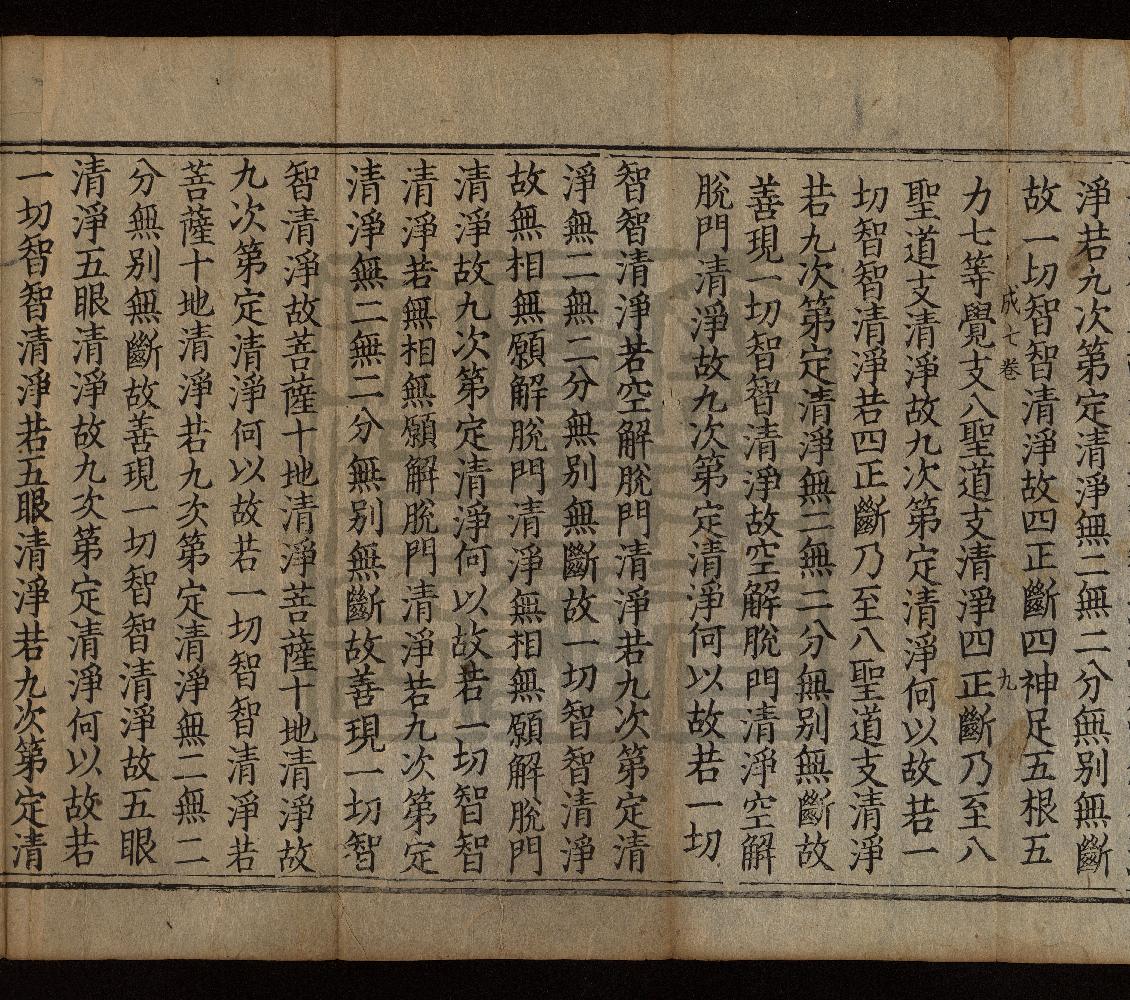 淨若九次第定清淨無二無二分無別無斷
故一切智智清淨故四正斷四神足五根五
成七卷 九
力七等覺支八聖道支清淨四正斷乃至八
聖道支清淨故九次第定清淨何以故若一
切智智清淨若四正斷乃至八聖道支清淨
若九次第定清淨無二無二分無別無斷故
善現一切智智清淨故空解脫門清淨空解
脫門清淨故九次第定清淨何以故若一切
智智清淨若空解脫門清淨若九次第定清
淨無二無二分無別無斷故一切智智清淨
故無相無願解脫門清淨無相無願解脫門
清淨故九次第定清淨何以故若一切智智
清淨若無相無願解脫門清淨若九次第定
清淨無二無二分無別無斷故善現一切智
智清淨故菩薩十地清淨菩薩十地清淨故
九次第定清淨何以故若一切智智清淨若
菩薩十地清淨若九次第定清淨無二無二
分無別無斷故善現一切智智清淨故五眼
清淨五眼清淨故九次第定清淨何以故若
一切智智清淨若五眼清淨若九次第定清